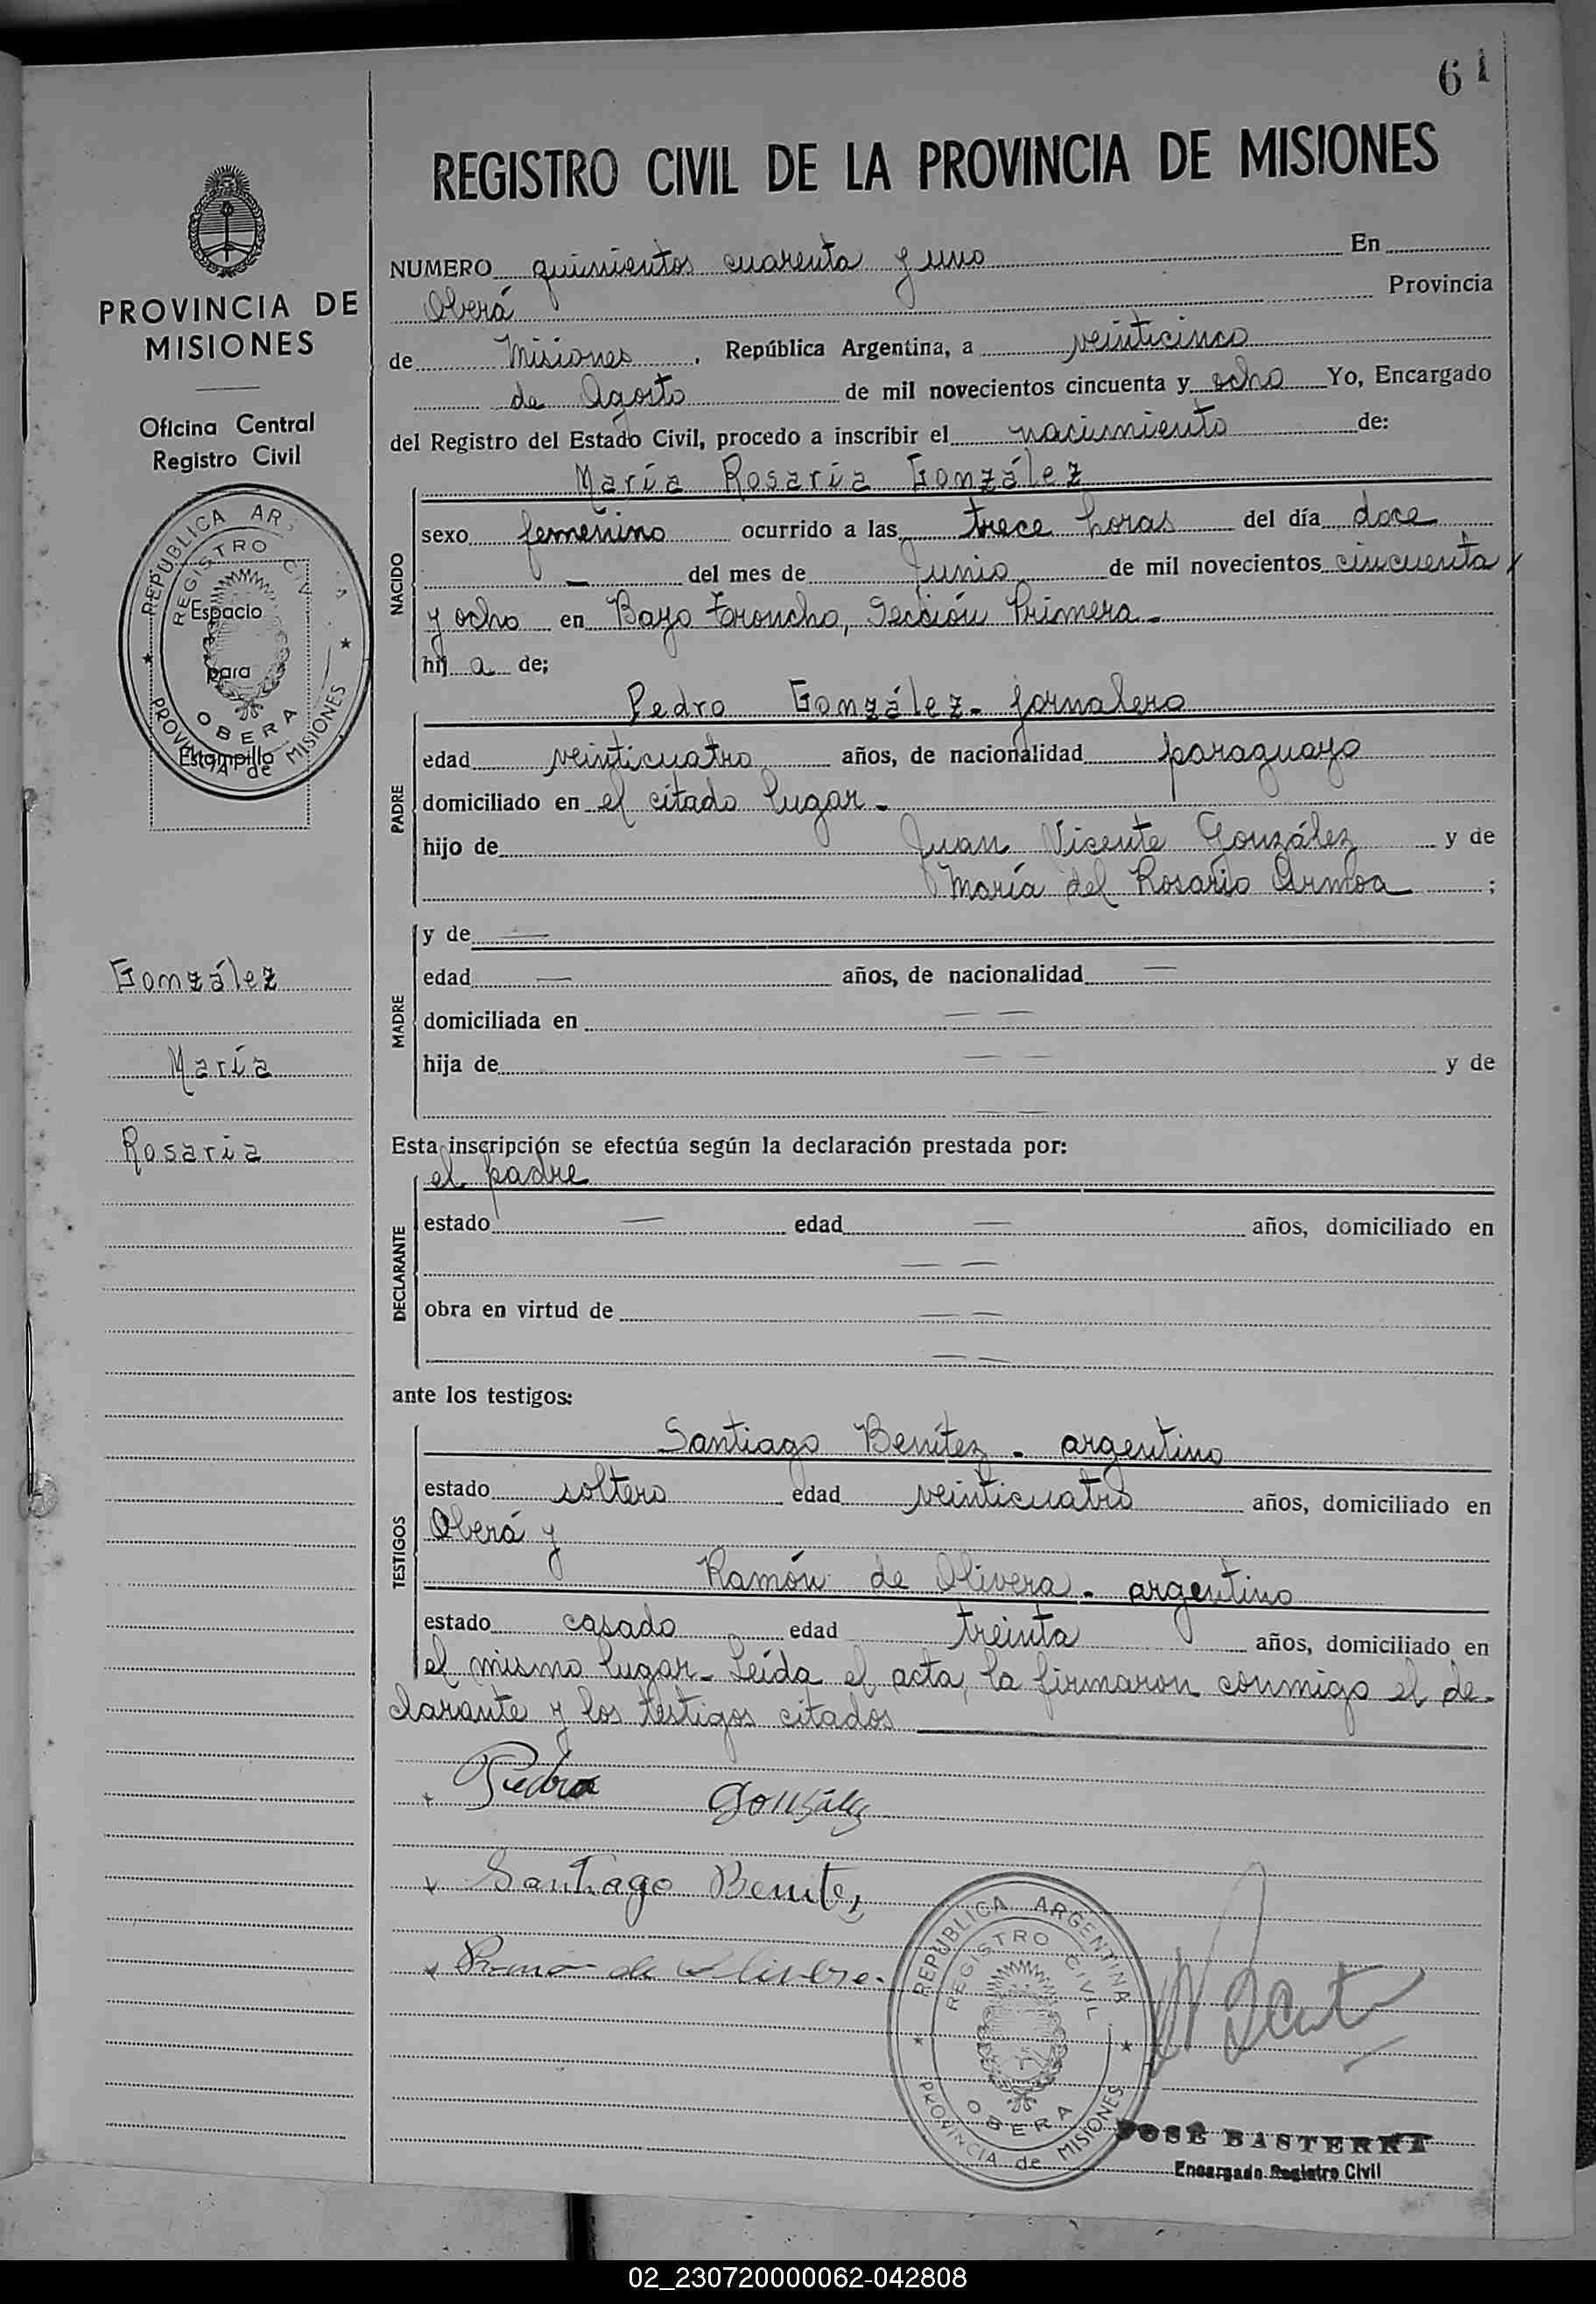 61
REGISTRO CIVIL DE LA PROVINCIA DE MISIONES
PROVINCIA DE
MISIONES
Oficina Central
Registro Civil
REPUBLICA AR
REGISTRO CIV
OBERA
PROVINCIA de MISIONES
Espacio
para
Estampilla
González
María
Rosaria
NUMERO quinientos cuarenta y uno En
Oberá Provincia
de Misiones, República Argentina, a veinticinco
de Agosto de mil novecientos cincuenta y ocho Yo, Encargado
del Registro del Estado Civil, procedo a inscribir el nacimiento de:
María Rosaria González
NACIDO
sexo femenino ocurrido a las trece horas del día doce
— del mes de Junio de mil novecientos cincuenta
y ocho en Bayo Troncho, Sección Primera.-
hij a de;
Pedro González- jornalero
PADRE
edad veinticuatro años, de nacionalidad paraguayo
domiciliado en el citado lugar -
hijo de Juan Vicente González y de
María del Rosario Armoa ;
MADRE
y de —
edad — años, de nacionalidad —
domiciliada en — —
hija de — — y de
— —
Esta inscripción se efectúa según la declaración prestada por:
el padre
DECLARANTE
estado — edad — años, domiciliado en
— —
obra en virtud de — —
— —
ante los testigos:
Santiago Benítez - argentino
TESTIGOS
estado soltero edad veinticuatro años, domiciliado en
Oberá y
Ramón de Olivera - argentino
estado casado edad treinta años, domiciliado en
el mismo lugar- Leída el acta, la firmaron conmigo el de-
clarante y los testigos citados
Pedro González
Santiago Benitez
Ramon de Olivera
REPUBLICA ARGENTINA
REGISTRO CIVIL
OBERA
PROVINCIA de MISIONES
JOSÉ BASTERRA
Encargado Registro Civil
02_230720000062-042808